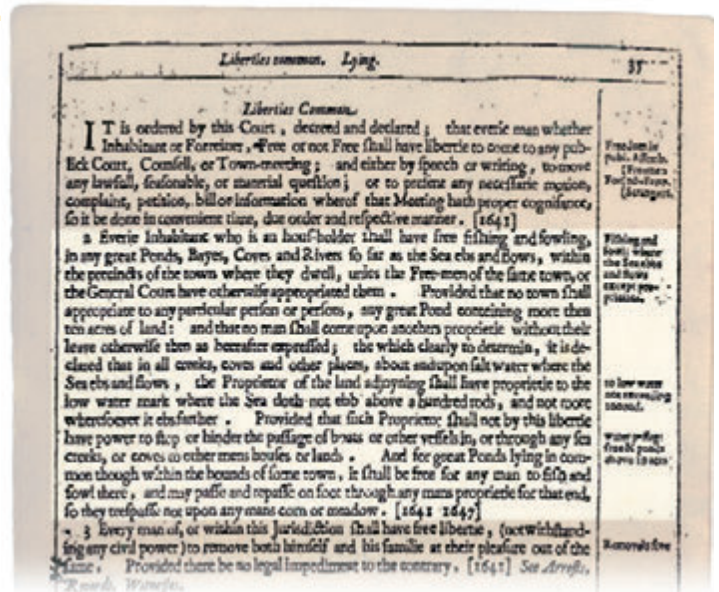 Liberties common. Lying. 35
Liberties Common.
IT is ordered by this Court, decreed and declared; that everie man whether
Inhabitant or Forreiner, Free or not Free shall have libertie to come to any pub-
lick Court, Counsell, or Town-meeting; and either by speech or writing, to move
any lawfull, seasonable, or material question; or to present any necessarie motion,
complaint, petition, bill or information wherof that Meeting hath proper cognisance,
so it be done in convenient time, due order and respective manner. [1641]
2 Everie Inhabitant who is an hous-holder shall have free fishing and fowling,
in any great Ponds, Bayes, Coves and Rivers so far as the Sea ebs and flows, within
the precincts of the town where they dwell, unles the Free-men of the same town, or
the General Court have otherwise appropriated them. Provided that no town shall
appropriate to any particular person or persons, any great Pond containing more then
ten acres of land: and that no man shall come upon anothers proprietie without their
leave otherwise then as heerafter expressed; the which clearly to determin, it is de-
clared that in all creeks, coves and other places, about and upon salt water where the
Sea ebs and flows, the Proprietor of the land adjoyning shall have proprietie to the
low water mark where the Sea doth not ebb above a hundred rods, and not more
wheresoever it ebs farther. Provided that such Proprietor shall not by this libertie
have power to stop or hinder the passage of boats or other vessels in, or through any sea
creeks, or coves to other mens houses or lands. And for great Ponds lying in com-
mon though within the bounds of some town, it shall be free for any man to fish and
fowl there, and may passe and repasse on foot through any mans proprietie for that end,
so they trespasse not upon any mans corn or meadow. [1641 1647]
3 Every man of, or within this Jurisdiction shall have free libertie, (notwithstand-
ing any civil power) to remove both himself and his familie at their pleasure out of the
same. Provided there be no legal impediment to the contrary. [1641] See Arrests,
Records, Witnesses.
Freedom in
publ. Assemb.
Fishing and
fowl: where
the Sea ebs
and flows
except
to low water
not exceeding
Removes free